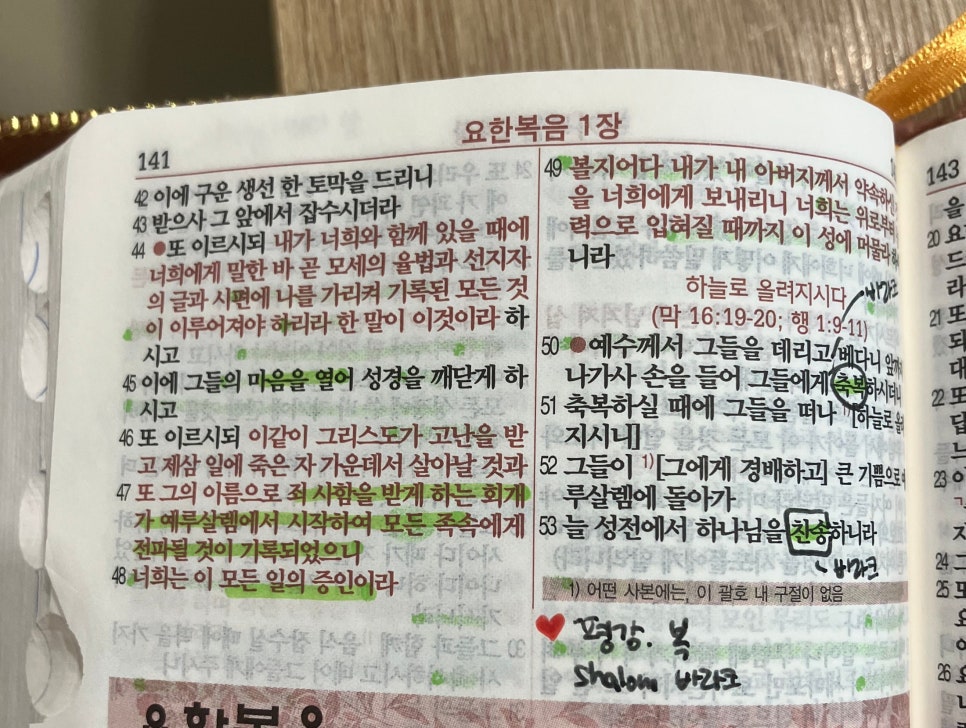 요한복음 1장
141
42 이에 구운 생선 한 토막을 드리니
43 받으사 그 앞에서 잡수시더라
44 ●또 이르시되 내가 너희와 함께 있을 때에
너희에게 말한 바 곧 모세의 율법과 선지자
의 글과 시편에 나를 가리켜 기록된 모든 것
이 이루어져야 하리라 한 말이 이것이라 하
시고
45 이에 그들의 마음을 열어 성경을 깨닫게 하
시고
46 또 이르시되 이같이 그리스도가 고난을 받
고 제삼 일에 죽은 자 가운데서 살아날 것과
47 또 그의 이름으로 죄 사함을 받게 하는 회개
가 예루살렘에서 시작하여 모든 족속에게
전파될 것이 기록되었으니
48 너희는 이 모든 일의 증인이라
49 볼지어다 내가 내 아버지께서 약속하신
을 너희에게 보내리니 너희는 위로부터
력으로 입혀질 때까지 이 성에 머물라
니라
하늘로 올려지시다
바라크
(막 16:19-20; 행 1:9-11)
50 ●예수께서 그들을 데리고 베다니 앞까
나가사 손을 들어 그들에게 축복하시더니
51 축복하실 때에 그들을 떠나 [하늘로
지시니]
52 그들이 1)[그에게 경배하고] 큰 기쁨으로
루살렘에 돌아가
53 늘 성전에서 하나님을 찬송하니라
바라크
1) 어떤 사본에는, 이 괄호 내 구절이 없음
♥ 평강. 복
shalom 바라크
요한복음
143
을
20 요
드
라
21 또
되
대
22 또
답
느
23 이
24 그
25 또
요
이
26 요